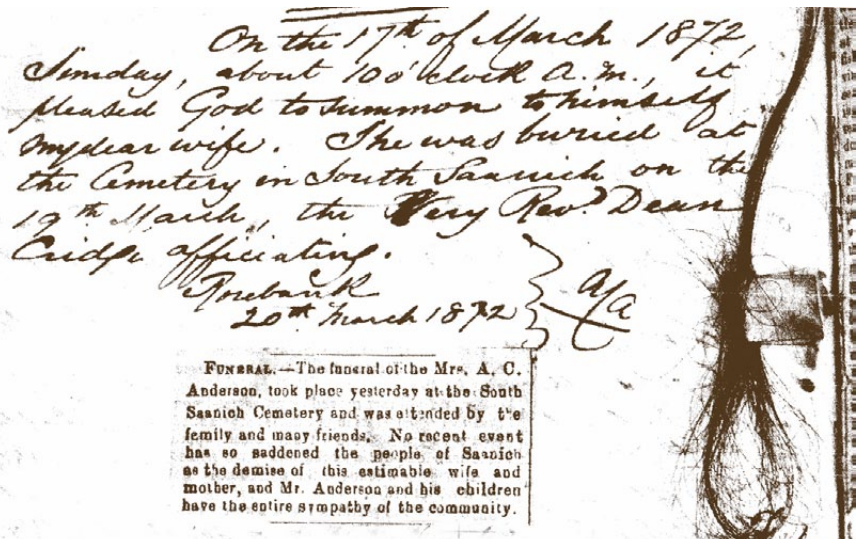 On the 17th of March 1872,
Sunday, about 10 o'clock A.M., it
pleased God to summon to himself
my dear wife. She was buried at
the Cemetery in South Saanich on the
19th March, the Very Revd. Dean
Cridge officiating.
Rosebank
20th March 1872
FUNERAL.—The funeral of the Mrs. A. C.
Anderson, took place yesterday at the South
Saanich Cemetery and was attended by the
family and many friends. No recent event
has so saddened the people of Saanich
as the demise of this estimable wife and
mother, and Mr. Anderson and his children
have the entire sympathy of the community.